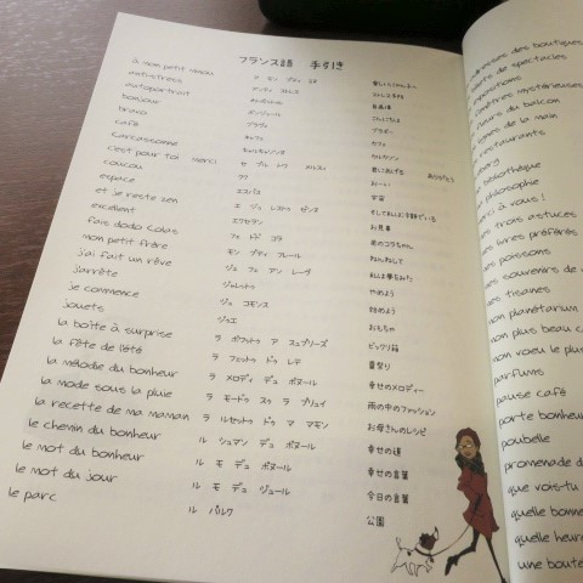 フランス語 手引き
à mon petit minou ア モン プティ ミヌ
antistress アンティ ストレス
autoportrait
bonjour ボンジュール こんにちは
bravo ブラヴォ ブラボー
café カフェ カフェ
carcassonne カルカソンヌ カルカソン
c'est pour toi merci セ プル トワ メルスィ 君にあげる ありがとう
coucou クク おーい
espace エスパス 宇宙
et je reste zen エ ジュ レストゥ ゼンヌ
excellent エクセラン お見事
fais dodo Colas フェ ドド コラ
mon petit frère モン プティ フレール
j'ai fait un rêve ジュ フェ アン レーヴ
j'arrête ジャレットゥ やめよう
je commence ジュ コモンス 始めよう
jouets ジゥエ おもちゃ
la boîte à surprise ラ ボワットゥ ア スュプリーズ ビックリ箱
la fête de l'été ラ フェットゥ ドゥ レテ 夏祭り
la mélodie du bonheur ラ メロディ デュ ボヌール 幸せのメロディー
la mode sous la pluie ラ モードゥ スゥ ラ プリュイ 雨の中のファッション
la recette de ma maman ラ ルセットゥ ドゥ マ ママン お母さんのレシピ
le chemin du bonheur ル シュマン デュ ボヌール 幸せの道
le mot du bonheur ル モ デュ ボヌール 幸せの言葉
le mot du jour ル モ デュ ジュール 今日の言葉
le parc ル パルク 公園
des boutiques
de spectacles
expositions
fenêtres mystérieuses
fleurs du balcon
lignes de la main
restaurants
bibliothèque
philosophie
merci à vous !
trois astuces
livres préférés
poissons
souvenirs de
tisanes
mon planétarium
mon plus beau
mon voeu le plus
parfums
pause café
porte bonheur
poubelle
promenade
que vois-tu
quelle bonne
quelle heure
une boute